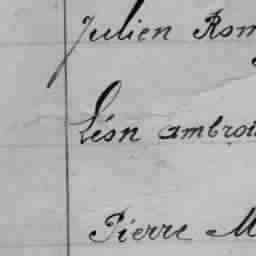 Julien Rom
Léon ambroi
Pierre M